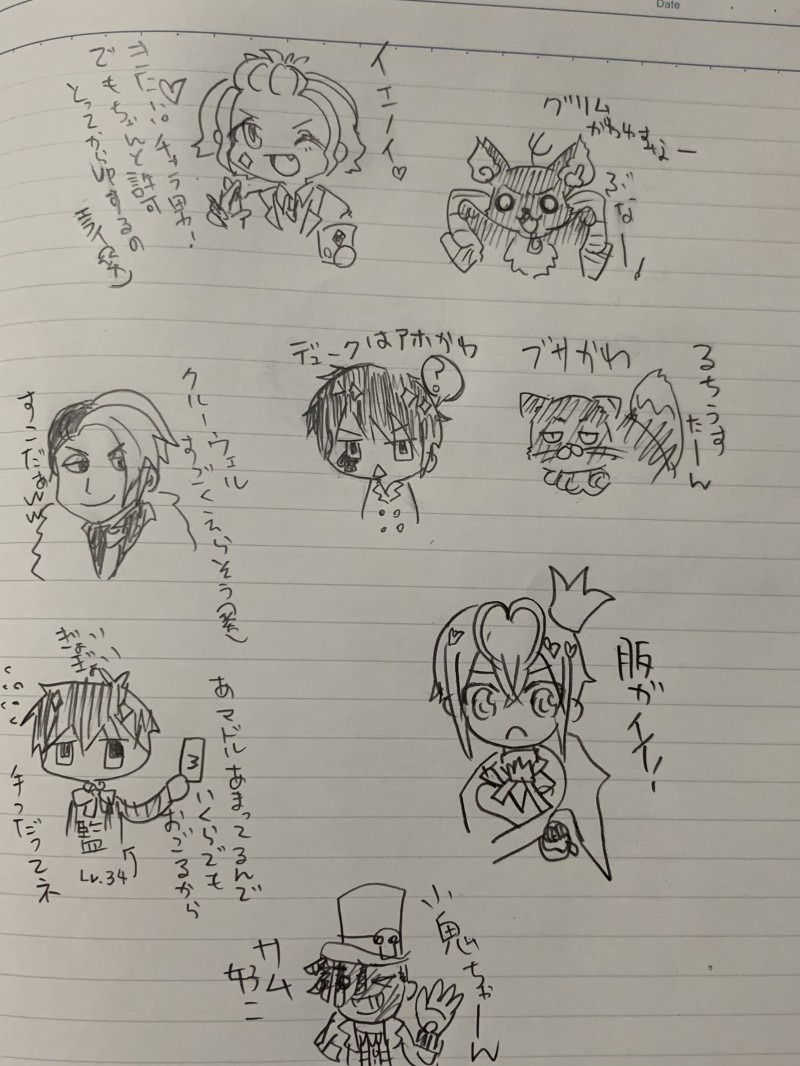 Date
イエーイ♡
きたに。チャラ男!
でもちゃんと許可
とってからupするの
グリム
かわわすなー
ふなー!
デュークはアホかわ
?
ブサかわ
るちうす
たーん
クルーウェル
すごくえらそう
すこだぁww
服がイイ!
ぎょい
ぎょい
あマドルあまってるんで
いくらでも
おごるから
手つだってネ
3
監
Lv.34
小鬼ちゃーん
サム